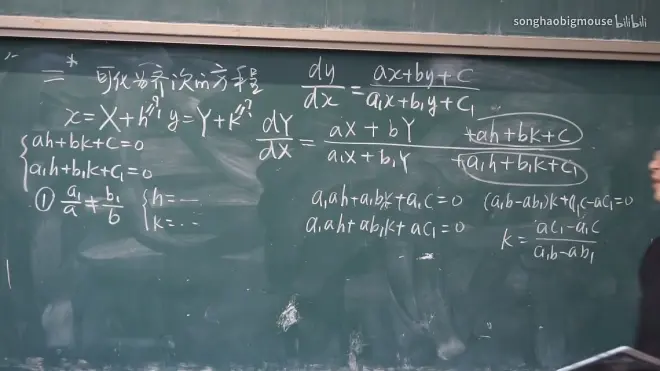 songhaobigmouse bilibili
二* 可化为齐次的方程 dy/dx = (ax+by+c)/(a₁x+b₁y+c₁)
x=X+h"?" y=Y+k"?" dY/dX = (aX+bY +ah+bk+c)/(a₁X+b₁Y +a₁h+b₁k+c₁)
{ah+bk+c=0
a₁h+b₁k+c₁=0
① a₁/a ≠ b₁/b {h=… k=…
a₁ah+a₁bk+a₁c=0 (a₁b-ab₁)k+a₁c-ac₁=0
a₁ah+ab₁k+ac₁=0 k= (ac₁-a₁c)/(a₁b-ab₁)